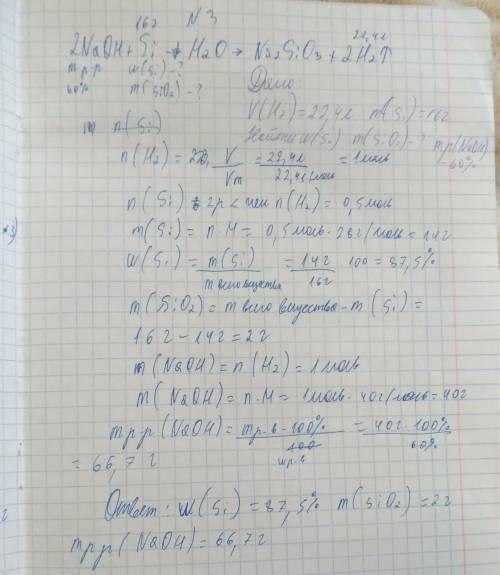 16г N 3
22,4л
2NaOH + Si + H2O → Na2SiO3 + 2H2↑
mр-р w(Si) - ?
60% m(SiO2) - ?
Дано:
V(H2) = 22,4л m(Si) = 16г
Найти w(Si) m(SiO2) - ? mр(NaOH)
- 60%
n(Si)
n(H2) = V/Vm = 22,4л/22,4л/моль = 1моль
n(Si) в 2р < чем n(H2) = 0,5моль
m(Si) = n·M = 0,5моль·28г/моль = 14г
w(Si) = m(Si)/m всего вещества = 14г/16г 100 = 87,5%
m(SiO2) = m всего вещества - m(Si) =
16г - 14г = 2г
n(NaOH) = n(H2) = 1моль
m(NaOH) = n·M = 1моль·40г/моль = 40г
mр-р(NaOH) = mр.в·100%/wр.в = 40г·100%/60%
= 66,7г
Ответ: w(Si) = 87,5% m(SiO2) = 2г
mр-р(NaOH) = 66,7г